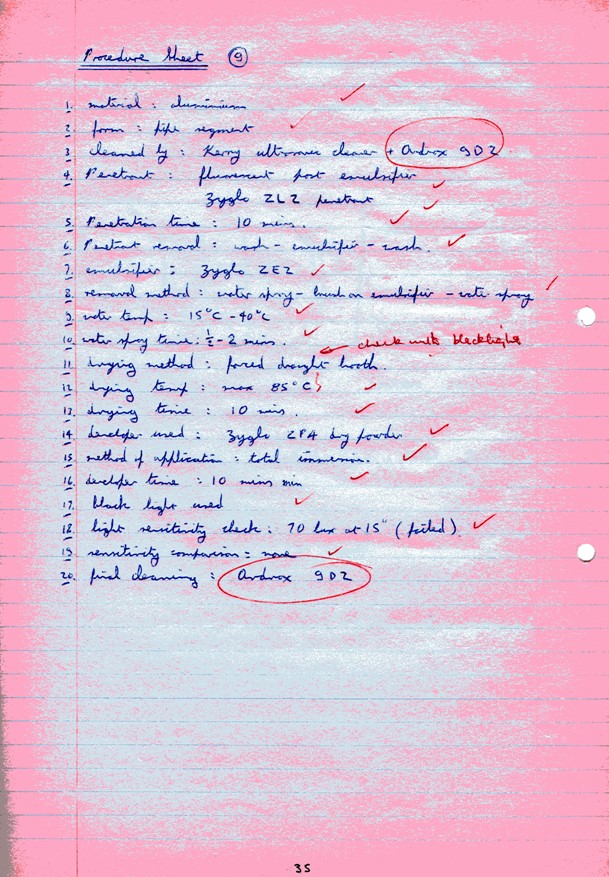 Procedure Sheet 9
1. material : aluminium
2. form : pipe segment
3. cleaned by : Kerry ultrasonic cleaner + Ardrox 9D2
4. Penetrant : fluorescent post emulsifier
Zyglo ZL2 penetrant
5. Penetration time : 10 mins.
6. Penetrant removal : wash - emulsifier - wash.
7. emulsifier : Zyglo ZE2
8. removal method : water spray - brush on emulsifier - water spray
9. water temp : 15°C - 40°C
10. water spray time : ½ - 2 mins. ← check with blacklight
11. drying method : forced draught booth.
12. drying temp : max 85°C
13. drying time : 10 mins.
14. developer used : Zyglo ZPA dry powder
15. method of application : total immersion.
16. developer time : 10 mins min
17. black light used
18. light sensitivity check : 70 lux at 15" (failed)
19. sensitivity comparison = none
20. final cleaning : Ardrox 9D2
35